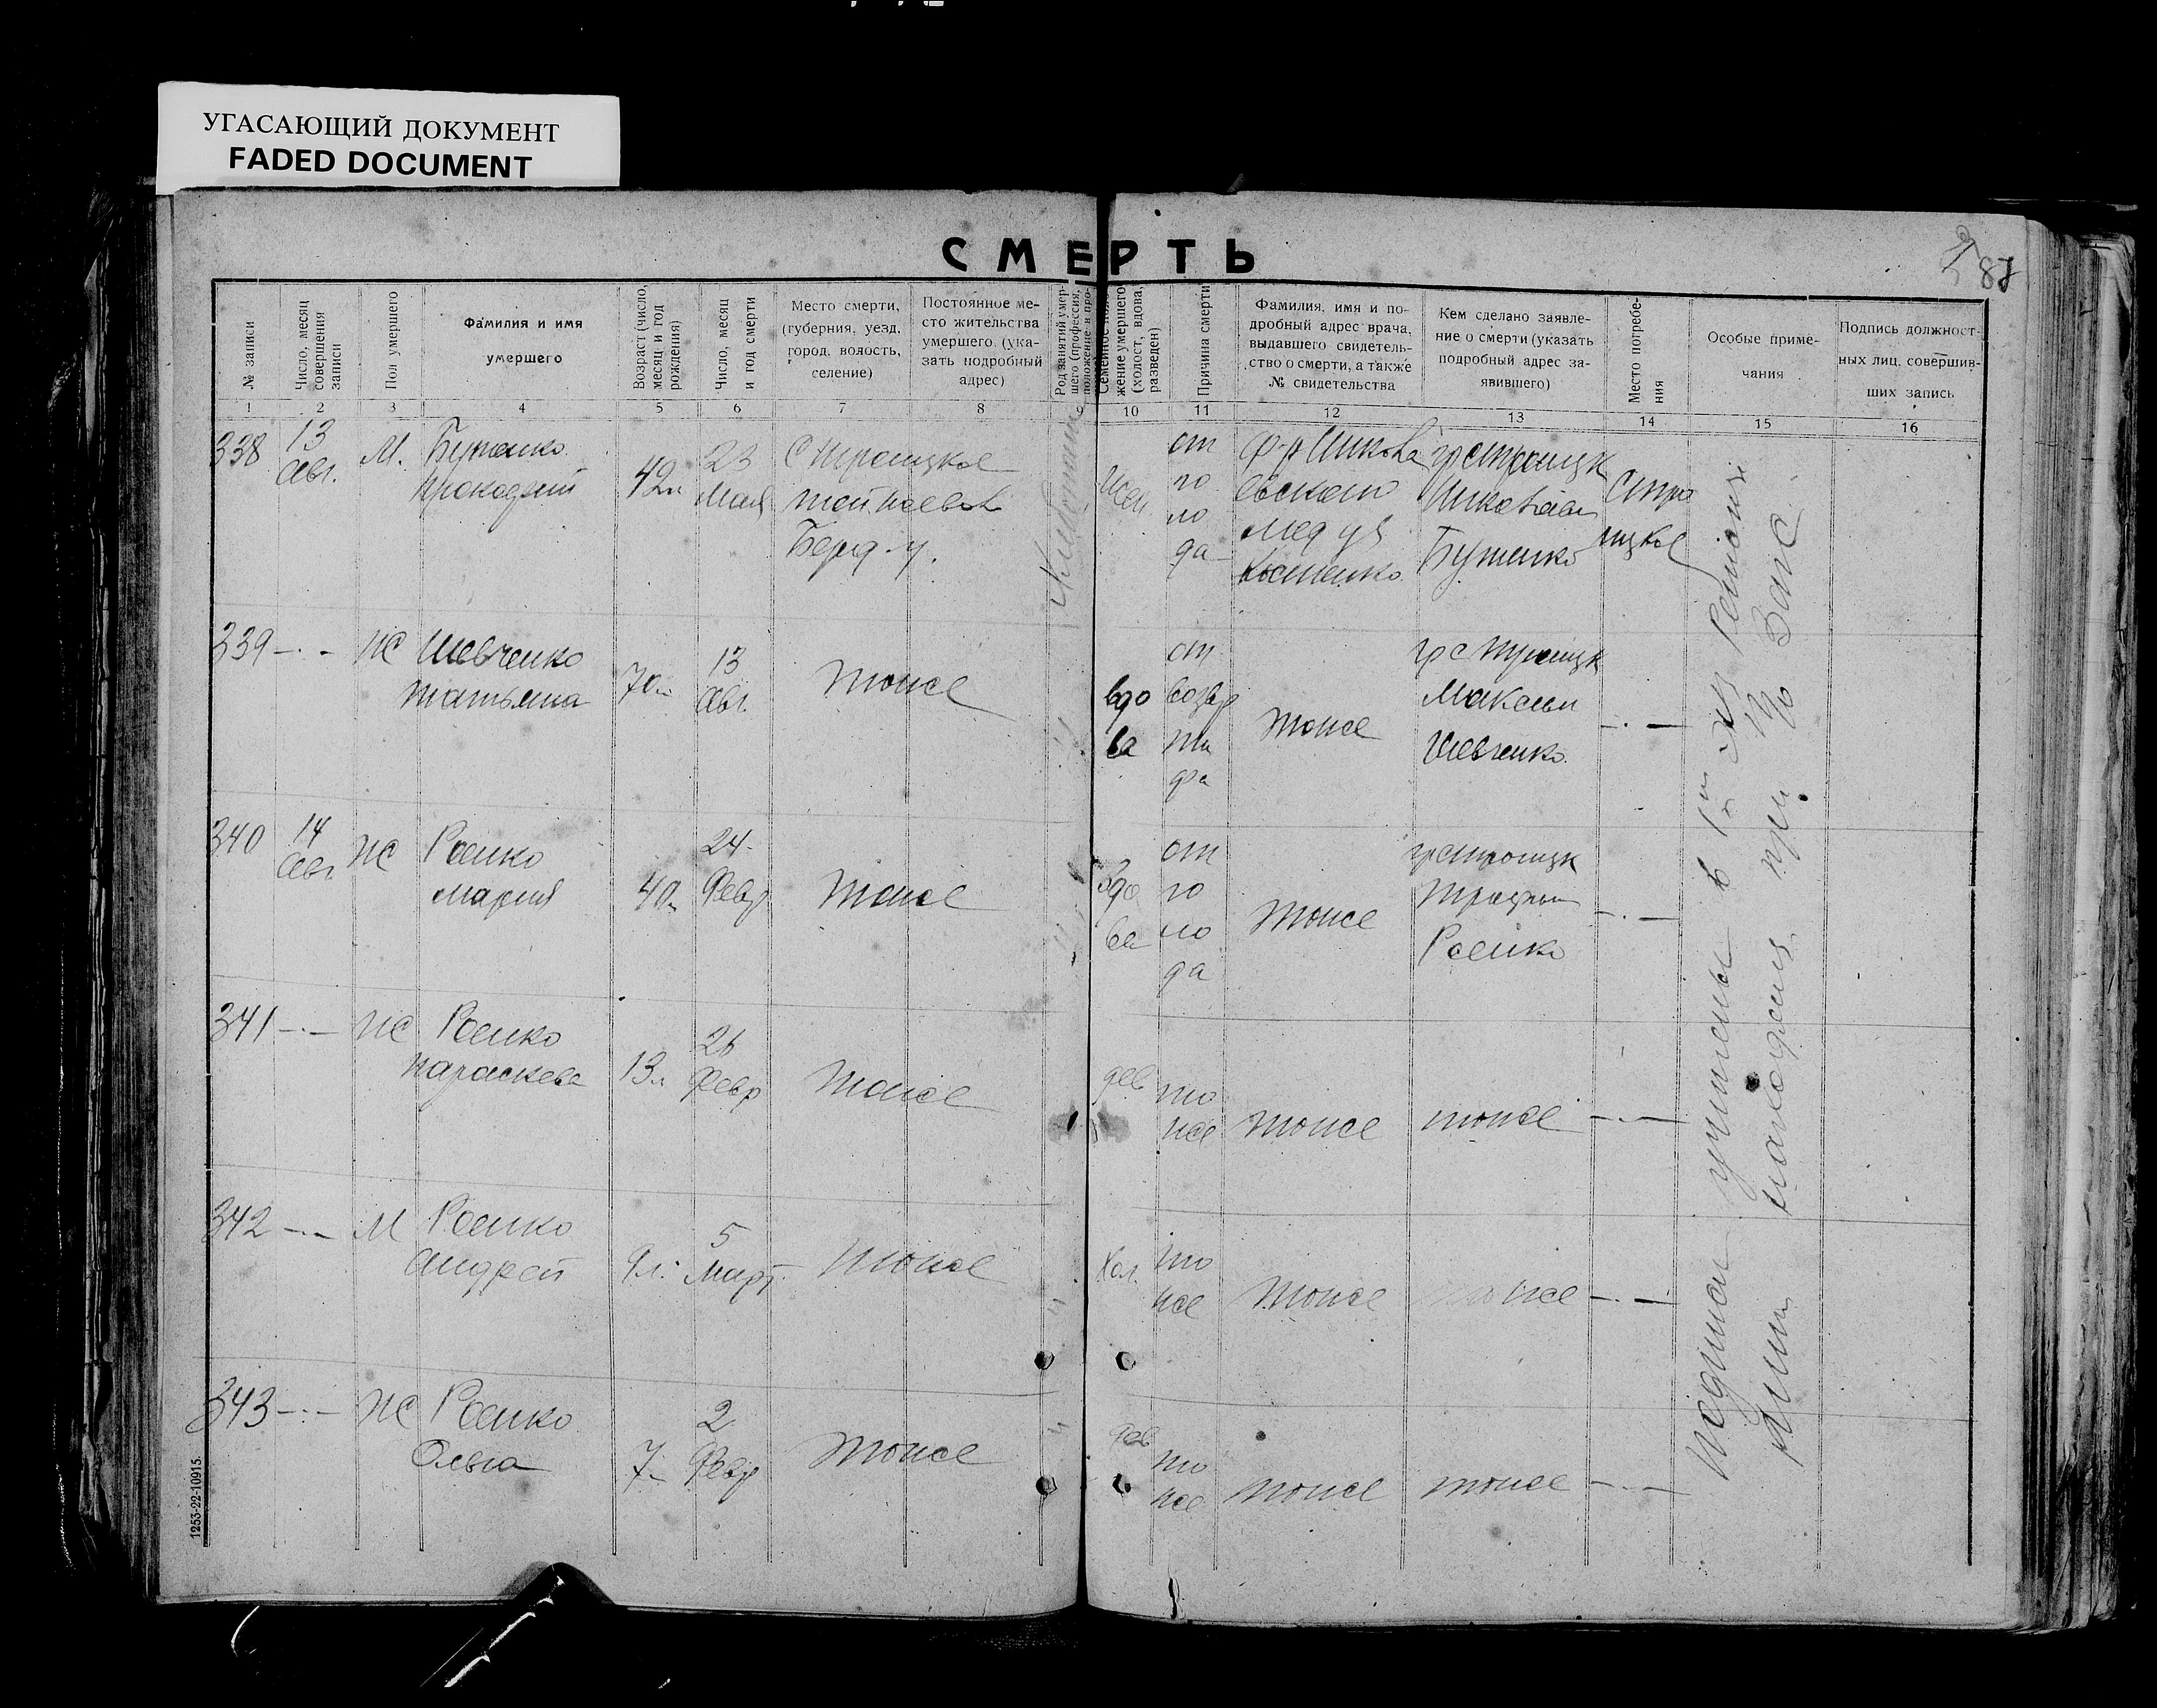 УГАСАЮЩИЙ ДОКУМЕНТ
FADED DOCUMENT
СМЕРТЬ
87
№ записи
Число, месяц совершения записи
Пол умершего
Фамилия и имя
умершего
Возраст (число, месяц и год рождения)
Число, месяц и год смерти
Место смерти,
(губерния, уезд,
город, волость,
селение)
Постоянное ме-
сто жительства
умершего. (ука-
зать подробный
адрес)
Род занятий умер-
шего (профессия,
положение в про-
Семейное
жение умершего
(холост, вдова,
разведен)
Причина смерти
Фамилия, имя и по-
дробный адрес врача,
выдавшего свидетель-
ство о смерти, а также
№ свидетельства
Кем сделано заявле-
ние о смерти (указать
подробный адрес за-
явившего)
Место погребе-
ния
Особые приме-
чания
Подпись должност-
ных лиц, совершив-
ших запись
1 2 3 4 5 6 7 8 9 10 11 12 13 14 15 16
338 13 Авг. М.
Прокофий
42л
23 Мая
С Троицкое
Берд-у.
жен.
от го ло да
мед уч
гр с Троицк
Буженко
С Тро
ицкое
339 -·- Ж Шевченко
Татьяна
70л
13 Авг.
тоже
вдо
ва
от
возр
та
тоже
гр с Троицк
Максим
Шевченко
-·-
340 14 Авг Ж Роенко
Мария
40л
24 Февр
тоже
вдо
ва
от
го
ло
да
тоже
гр с Троицк
Роенко
-·-
341 -·- Ж Роенко
Параскева
13л
26 Февр
тоже
дев
то
же
тоже
тоже
-·-
342 -·- М Роенко
Андрей
9л.
5 Март.
тоже
хол.
то
же
тоже
тоже
-·-
343 -·- Ж Роенко
Ольга
7л
2 Февр
тоже
дев
то
же
тоже
тоже
-·-
учинены в
при
1253-22-10915.